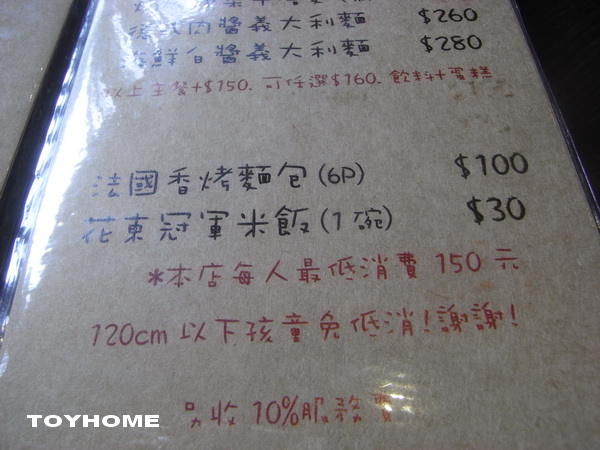 肉醬義大利麵 $260
海鮮白醬義大利麵 $280
以上主餐+$150. 可任選$160. 飲料+蛋糕
法國香烤麵包(6P) $100
花東冠軍米飯(1碗) $30
*本店每人最低消費 150 元
120cm 以下孩童免低消!謝謝!
另收 10%服務費
TOYHOME